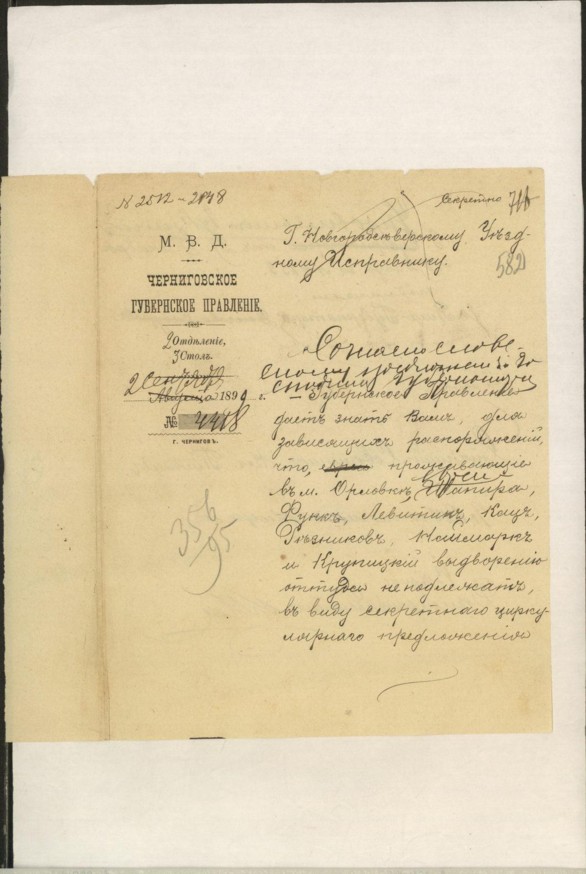 № 2512 – 2148
Секретно
М. В. Д.
ЧЕРНИГОВСКОЕ
ГУБЕРНСКОЕ ПРАВЛЕНІЕ.
2 Отдѣленіе,
3 Столъ.
2 Сентября
Августа 1899 г.
№ 4418
Г. ЧЕРНИГОВЪ.
356/95
Г. Новгородсѣверскому Уѣзд-
ному Исправнику.
582
Согласно слове-
сному
Губернское Правленіе
даетъ знать Вамъ, для
зависящихъ распоряженій,
что, проживающіе
въ м. Орловкѣ, евреи Шапира,
Функъ, Левитинъ, Кацъ,
Рѣзниковъ, Наймаркъ
и Крупицкій выдворенію
оттуда не подлежатъ,
въ виду секретнаго цирку-
лярнаго предложенія